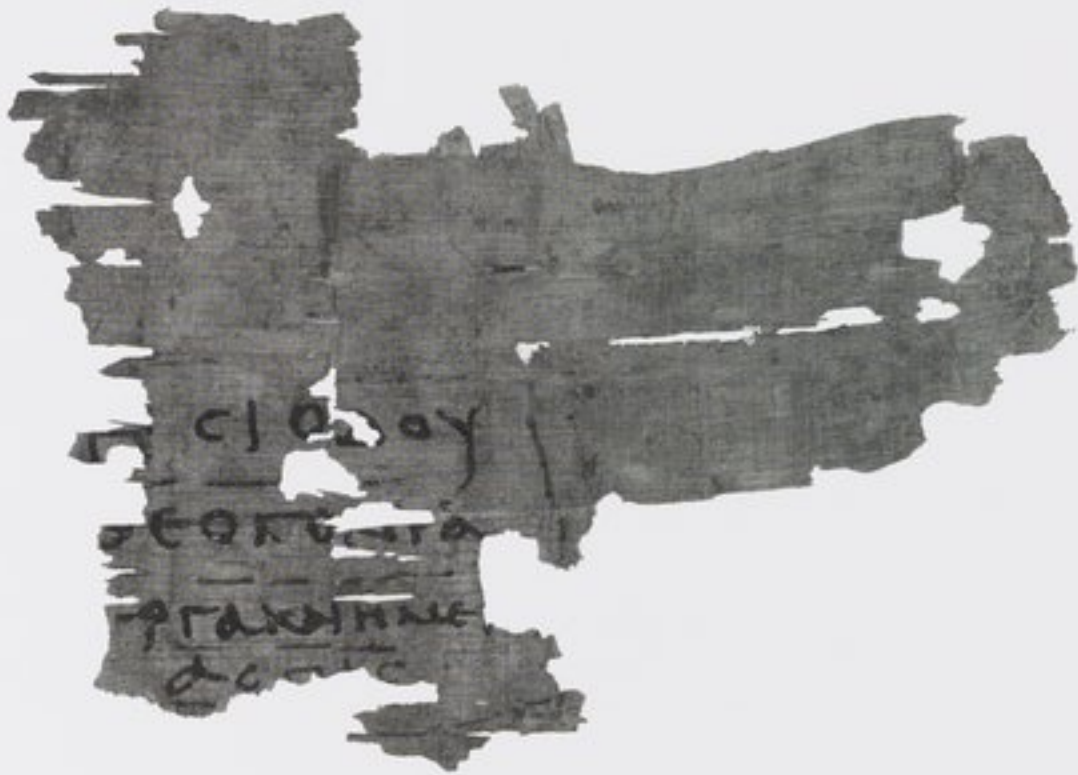 ΗϹΙΟΔΟΥ
ΘΕΟΓΟΝΙΑ
ΡΓΑΚΑΙΗΜΕ
ΑϹΠΙϹ